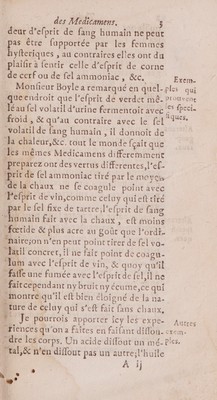 des Medicament. 5
deur d'esprit de sang humain ne peut
pas être supportée par les femmes
hysteriques, au contraires elles ont du
plaisir à sentir celle d'esprit de corne
de cerf ou de sel ammoniac, &c.
Exemples qui
prouvent
es speci-
fiques.
Monsieur Boyle a remarqué en quel-
que endroit que l'esprit de verdet mê-
lé au sel volatil d'urine fermentoit avec
froid, & qu'au contraire avec le sel
volatil de sang humain, il donnoit de
la chaleur, &c. tout le monde sçait que
les mêmes Medicamens differemment
preparez ont des vertus differentes, l'es-
prit de sel ammoniac tiré par le moyen
de la chaux ne se coagule point avec
l'esprit de vin, comme celuy qui est tiré
par le sel fixe de tartre, l'esprit de sang
humain fait avec la chaux, est moins
fœtide & plus acre au goût que l'ordi-
naire; on n'en peut point tirer de sel vo-
latil concret, il ne fait point de coagu-
lum avec l'esprit de vin, & quoy qu'il
fasse une fumée avec l'esprit de sel, il ne
fait cependant ny bruit ny écume, ce qui
montre qu'il est bien éloigné de la na-
ture de celuy qui s'est fait sans chaux.
Autres
exem-
ples.
Je pourrois apporter icy les expe-
riences qu'on a faites en faisant dissou-
dre les corps. Un acide dissout un mé-
tal, & n'en dissout pas un autre; l'huile
A ij